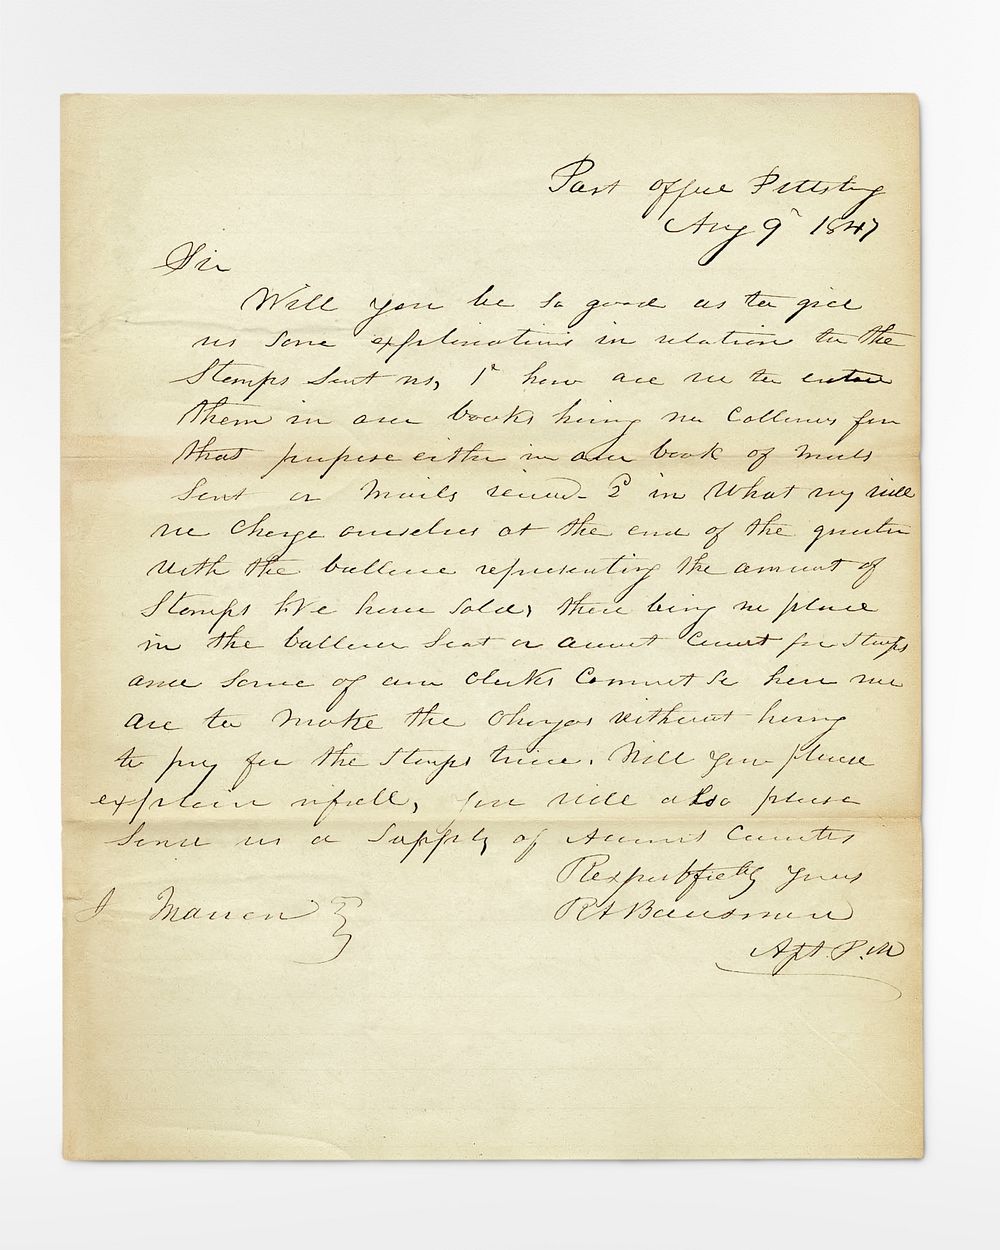 Post Office Pittsbg
Aug 9 1847
Sir
Will you be so good as to give
us some explinations in relation to the
Stamps sent us, 1st how are we to enter
them in our books being no Collums for
that purpose either in our book of Mails
Sent or Mails received - 2d in What way will
we Charge ourselves at the end of the quarter
with the ballence representing the amount of
Stamps We have sold, there being no place
in the ballence Sheet or account Currt for Stamps
and some of our Clerks Cannot se how we
are to make the Charges without having
to pay for the Stamps twice. Will you please
explain in full, you will also please
send us a supply of Accounts Currents
Respectfully Yours
R A Bausman
Asst. P.M
J Marron